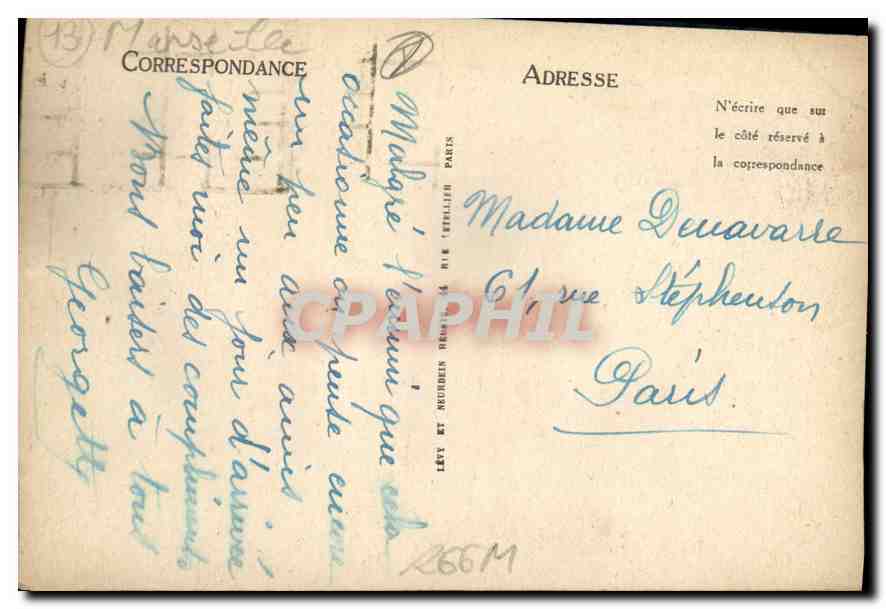 (13) Marseille
CORRESPONDANCE
Malgré l'ennui que cela
occasionne on pense encore
un peu aux amis
même un jour d'arrivée
faites moi des compliments
Bons baisers à tous
Georgette
LÉVY ET NEURDEIN RÉUNIS, 44 RUE LETELLIER PARIS
ADRESSE
N'écrire que sur
le côté réservé à
la correspondance
Madame Denavarre
61, rue Stéphenson
Paris
CPAPHIL
266M